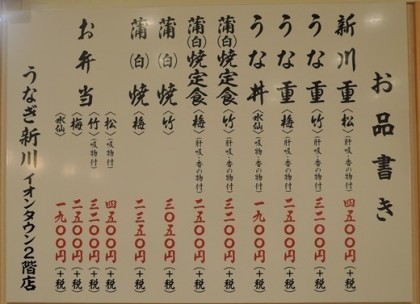 お品書き
新川重〈松〉(肝吸・香の物付) 四五〇〇円(+税)
うな重〈竹〉(肝吸・香の物付) 三二〇〇円(+税)
うな重〈梅〉(肝吸・香の物付) 二五〇〇円(+税)
うな丼〈水仙〉(吸物付) 一九〇〇円(+税)
蒲(白)焼定食〈竹〉(肝吸・香の物付) 三二〇〇円(+税)
蒲(白)焼定食〈梅〉(肝吸・香の物付) 二五〇〇円(+税)
蒲(白)焼〈竹〉 三〇五〇円(+税)
蒲(白)焼〈梅〉 二三五〇円(+税)
お弁当
〈松〉(吸物付) 四五〇〇円(+税)
〈竹〉(吸物付) 三二〇〇円(+税)
〈梅〉 二五〇〇円(+税)
〈水仙〉 一九〇〇円(+税)
うなぎ新川 イオンタウン2階店